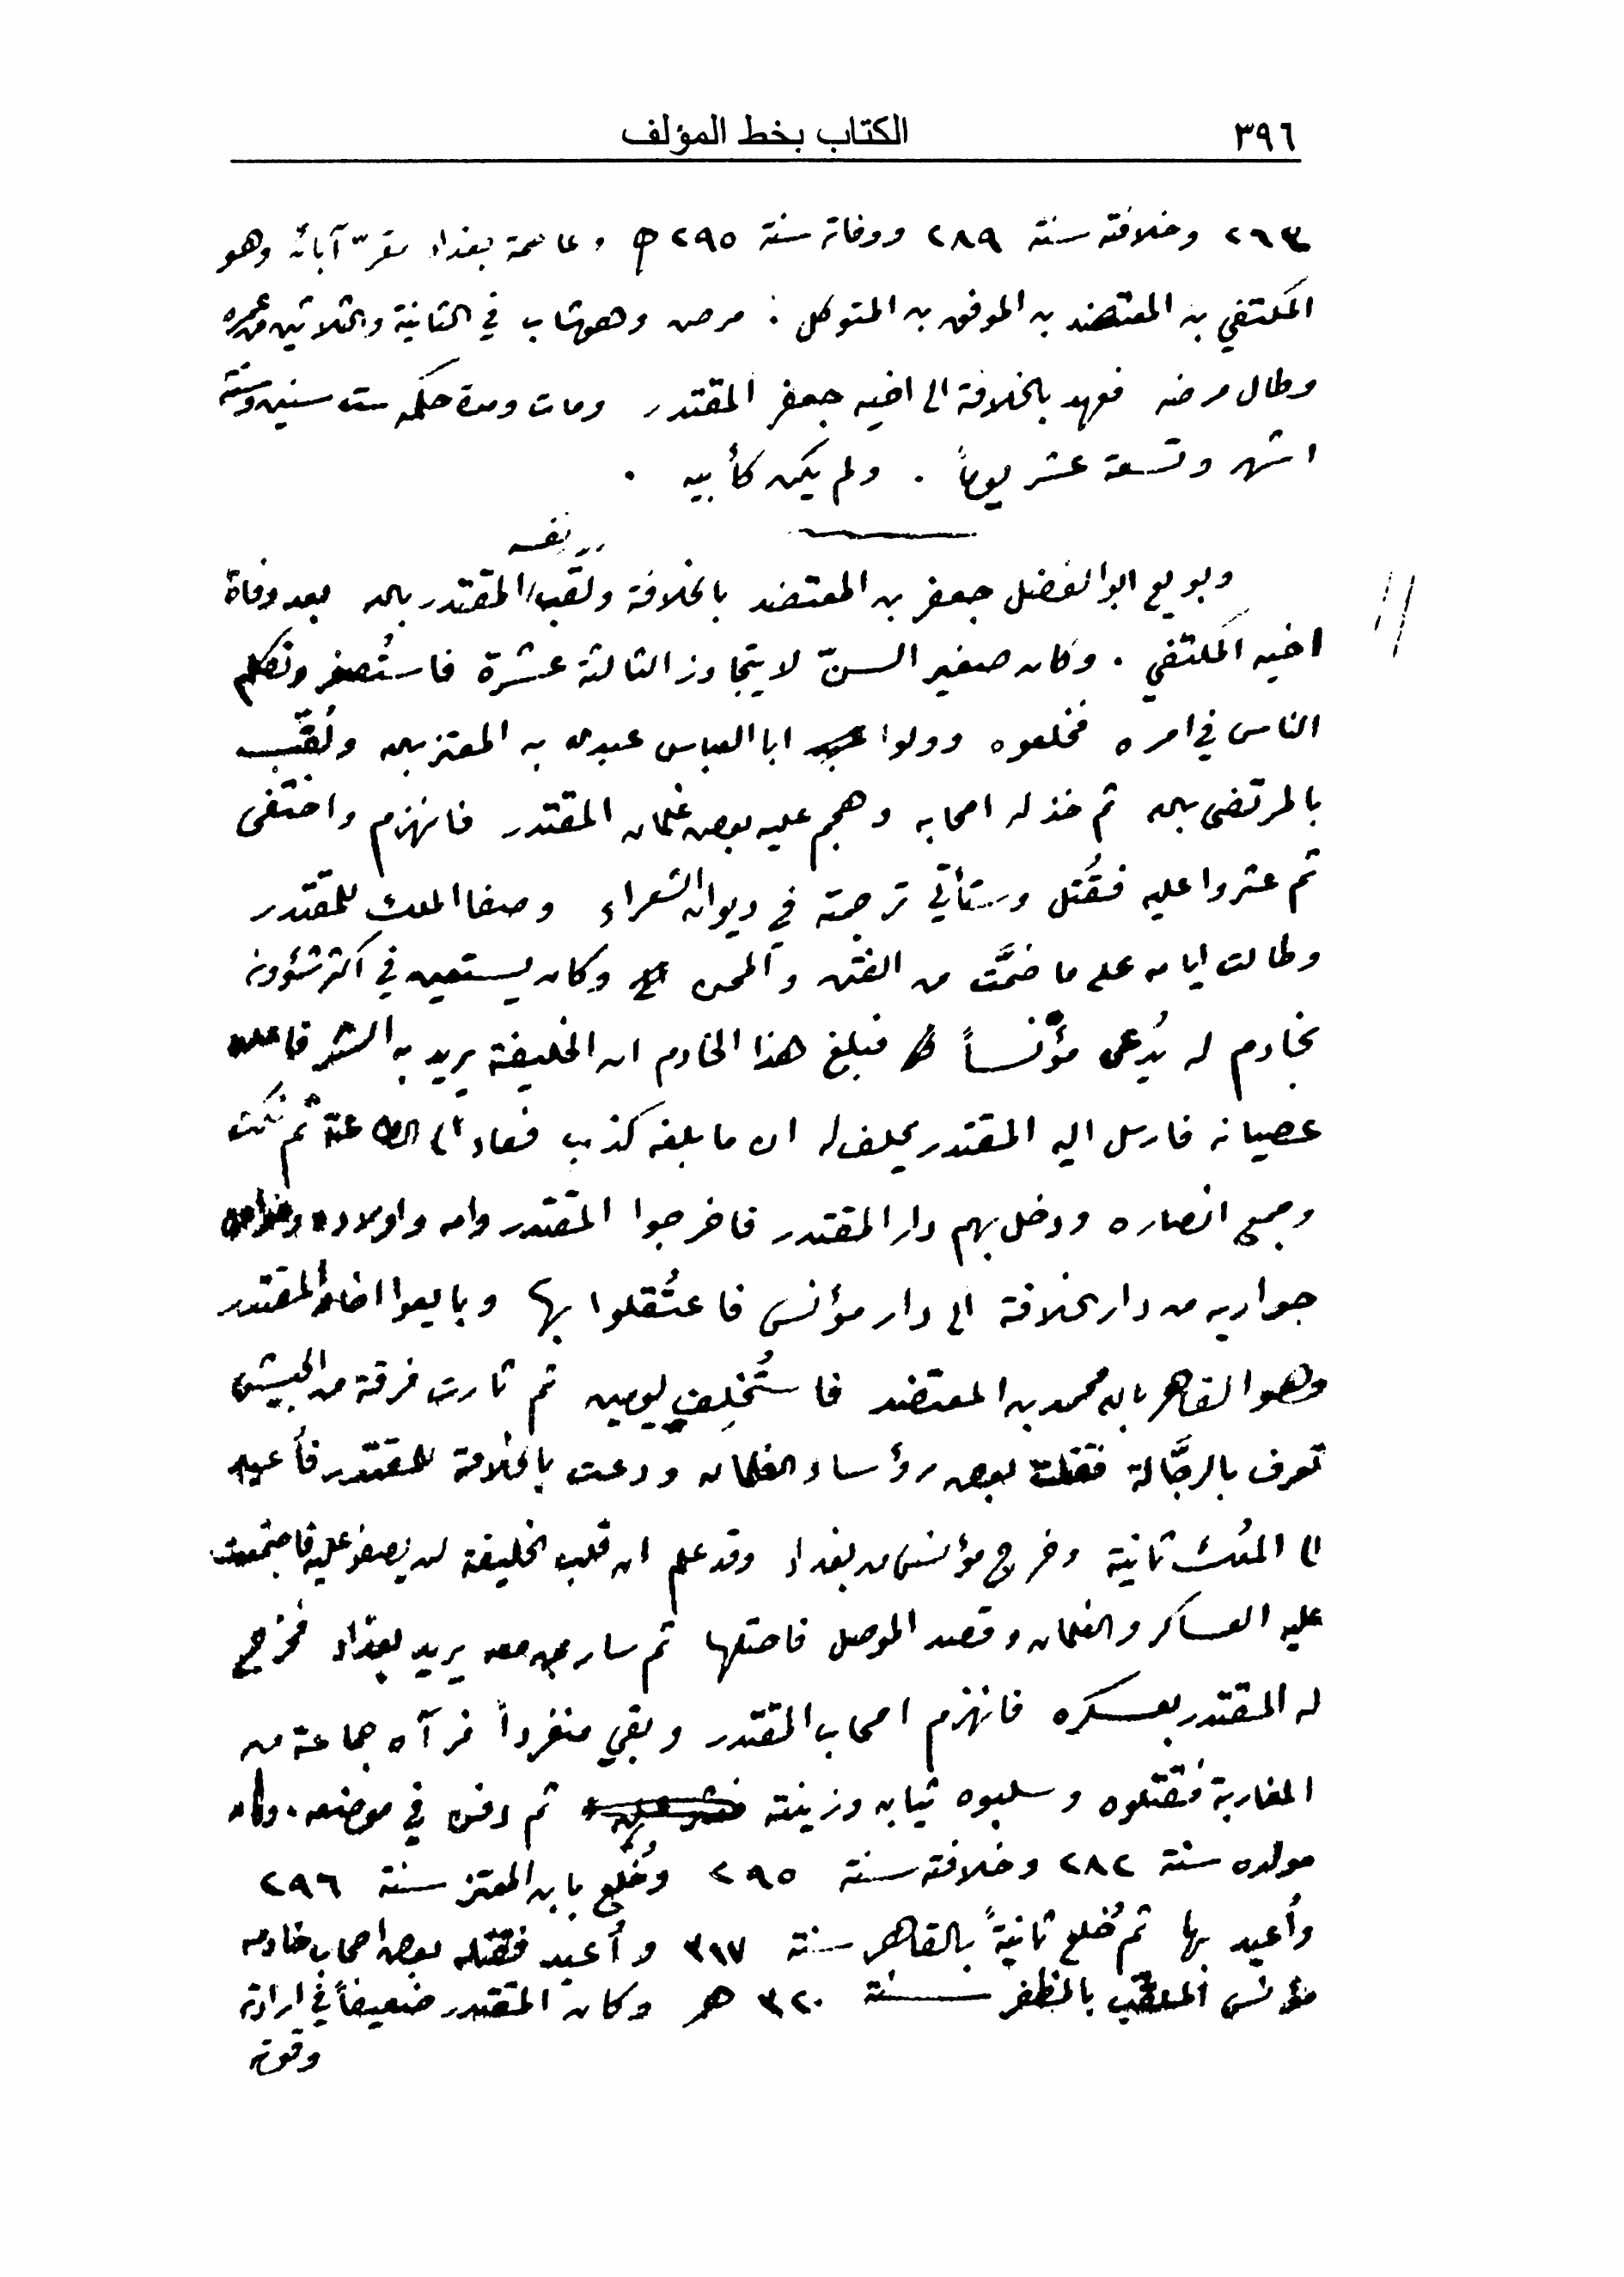 ٣٩٦ الكتاب بخط المؤلف
٢٦٣ وخلافته سنة ٢٨٩ ووفاته سنة ٢٩٥ هـ وعاصمة بغداد مقرّ آبائه وهو
المكتفي بن المعتضد بن الموفق بن المتوكل : مرض وهو شاب في الثانية والثلاثين من عمره
وطال مرضه فعهد بالخلافة الى اخيه جعفر المقتدر ومات ومدة حكمه ست سنين وستة
اشهر وتسعة عشر يوماً . ولم يكن كأبيه .
نفسه
وبويع ابو الفضل جعفر بن المعتضد بالخلافة ولقب المقتدر بالله بعد وفاة
اخيه المكتفي . وكان صغير السنّ لا يتجاوز الثالثة عشرة فاستُصغر وتكلم
الناس في امره فخلعوه وولوا ابا العباس عبد الله بن المعتز بالله ولُقّب
بالمرتضى بالله ثم خذله اصحابه وهجم عليه بعض غلمان المقتدر فانهزم واختفى
ثم عثروا عليه فقُتل وستأتي ترجمته في ديوان الشعراء وصفا الملك للمقتدر
وطالت ايامه على ما ضمَّت من الفتن والمحن وكان يستعين في اكثر شؤونه
بخادم له يُدعى مؤنساً فبلغ هذا الخادم ان الخليفة يريد به الشر فاعلن
عصيانه فارسل اليه المقتدر يحلف له ان ما بلغه كذب فعاد الى الطاعة ثم نكث
وجمع انصاره ودخل بهم دار المقتدر فاخرجوا المقتدر وامه واولاده وخواص
جواريه من دار الخلافة الى دار مؤنس فاعتُقلوا بها وبايعوا اخا المقتدر
وهو القاهر بالله محمد بن المعتضد فاستُخلِف يومين ثم ثارت فرقة من الجيش
تعرف بالرجَّالة فقتلت بعض رؤساء الغلمان ودعت بالخلافة للمقتدر فأعيد
الى الملك ثانية وخرج مؤنس من بغداد وقد علم ان قلب الخليفة لن يصفو عليه فاجتمعت
عليه العساكر والغلمان وقصد الموصل فاحتلها ثم سار بمن معه يريد بغداد فخرج
له المقتدر بعسكره فانهزم اصحاب المقتدر وبقي منفرداً فرآه جماعة من
المغاربة فقتلوه وسلبوه ثيابه وزينته ثم دفن في موضعه . وكان
مولده سنة ٢٨٢ وخلافته سنة ٢٩٥ وخُلع بابن المعتز سنة ٢٩٦
وأُعيد بها ثم خُلع ثانيةً بالقاهر سنة ٣١٧ وأُعيد فقتله بعض اصحاب خادمه
مؤنس الملقّب بالمظفر سنة ٣٢٠ هـ وكان المقتدر ضعيفاً في ارادته
وقوته